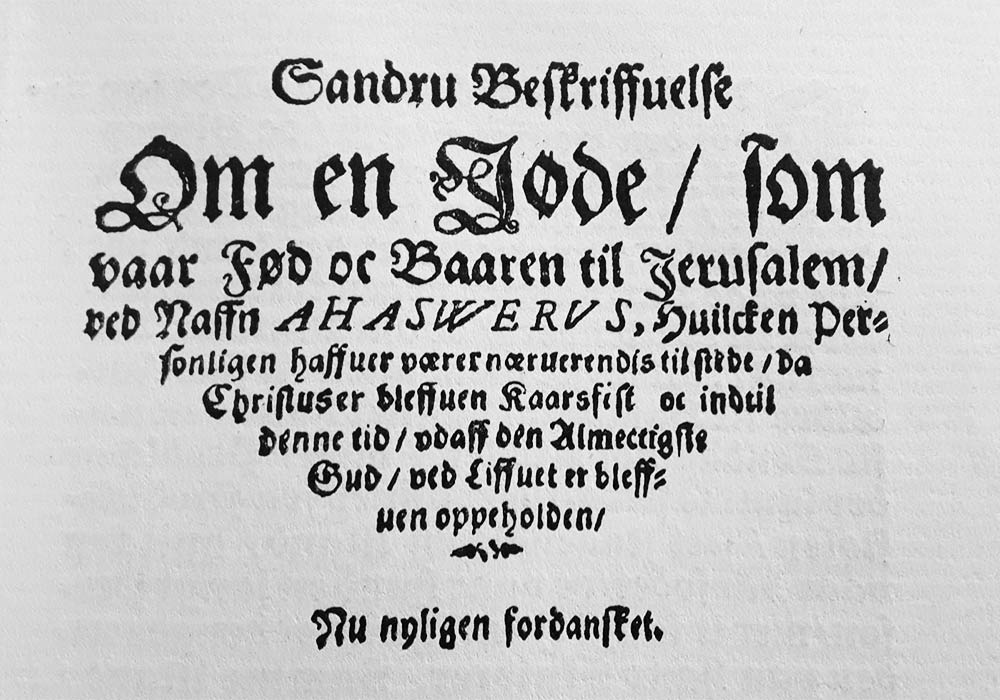 Sandru Beskriffuelse
Om en Jøde / som
vaar Fød oc Baaren til Jerusalem /
ved Naffn AHASWERVS, Huilcken Per-
sonligen haffuer værer næruerendis til stede / da
Christus er bleffuen Kaarsfist oc indtil
denne tid / vdaff den Almectigste
Gud / ved Liffuet er bleff-
uen oppeholden /
Nu nyligen fordansket.